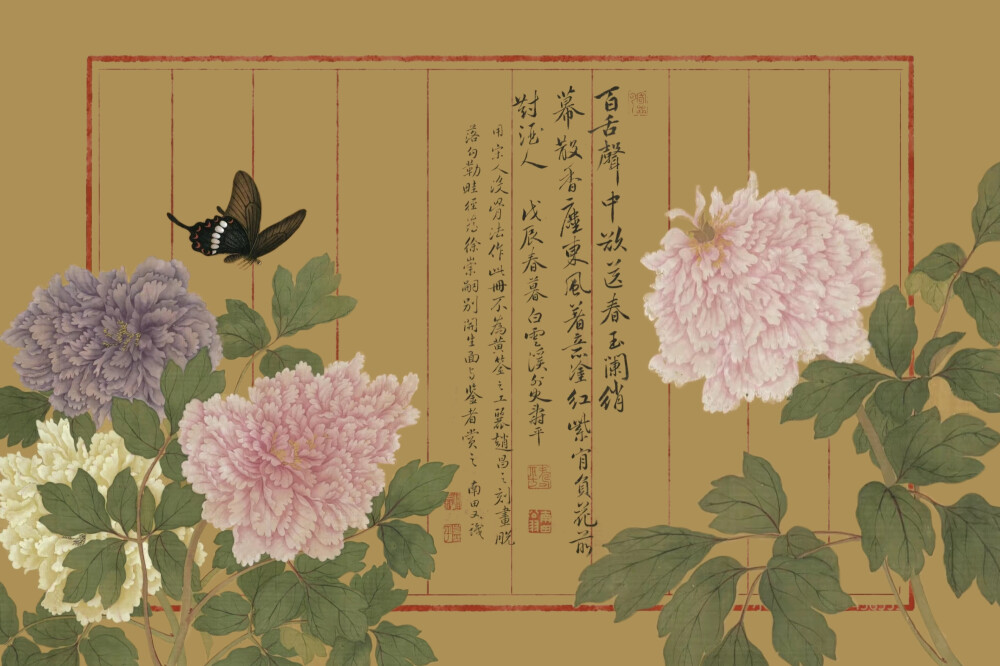 百舌聲中欲送春玉闌綃
幕散香塵東風著意塗紅紫肯負花前
對酒人
戊辰春暮白雲溪外史壽平
用宋人沒骨法作此冊不為黃筌之工麗趙昌之刻畫脫
落向勒畦徑為徐崇嗣別開生面與鑒者賞之
南田又識